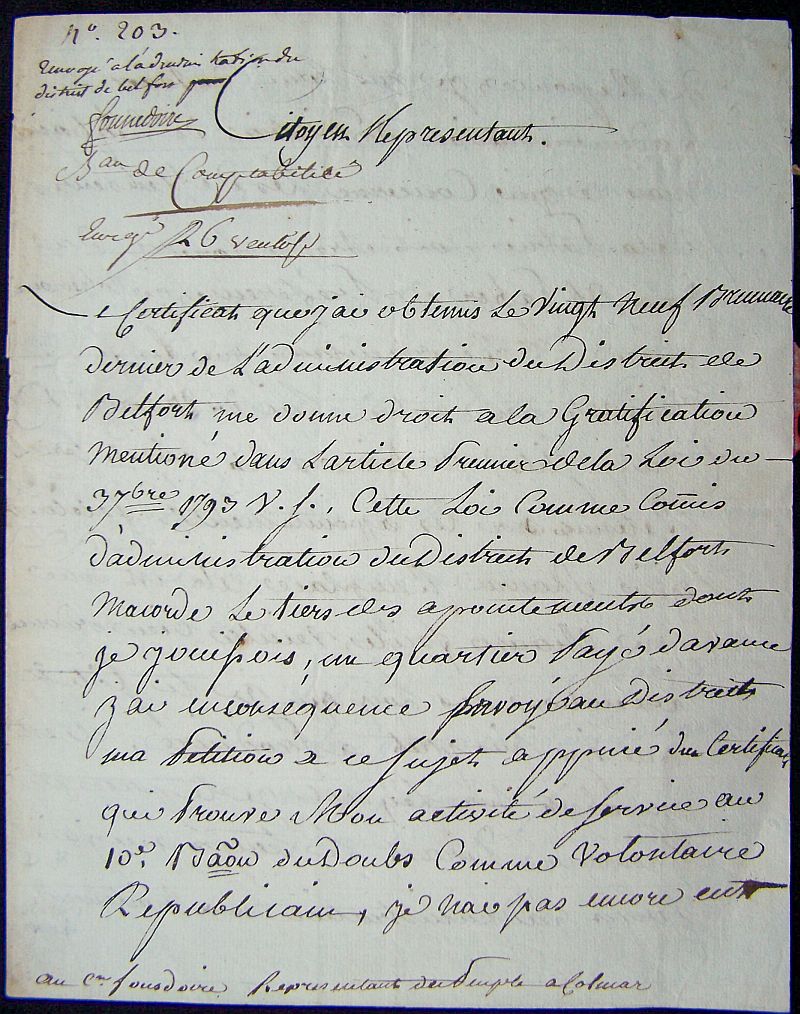 N.º 203.
Envoyé a l'administration du
district de belfort
foussedoire
Citoyen Representant.
Bau de Comptabilité
Enregé 26 ventose
Le Certificat que j'ai obtenus Le Vingt Neuf Brumaire
dernier de L'administration du District de
Belfort me donne droit a la Gratification
Mentioné dans Larticle Premier de la Loi du
3 7bre 1793 V. S. Cette Loi Comme Comis
d'administration du District de Belfort
Macorde Le tiers des apointements dont
je jouissois, un quartier Payé d'avance
j'ai enconséquence Envoyé au District
ma Petition a ce Sujet appuié d'un Certificat
qui Prouve Mon activité de Service au
10e. Baõn du Doubs Comme Volontaire
Republicain, je nai pas encore eut
au Cen fousdoire Representant du Peuple a Colmar